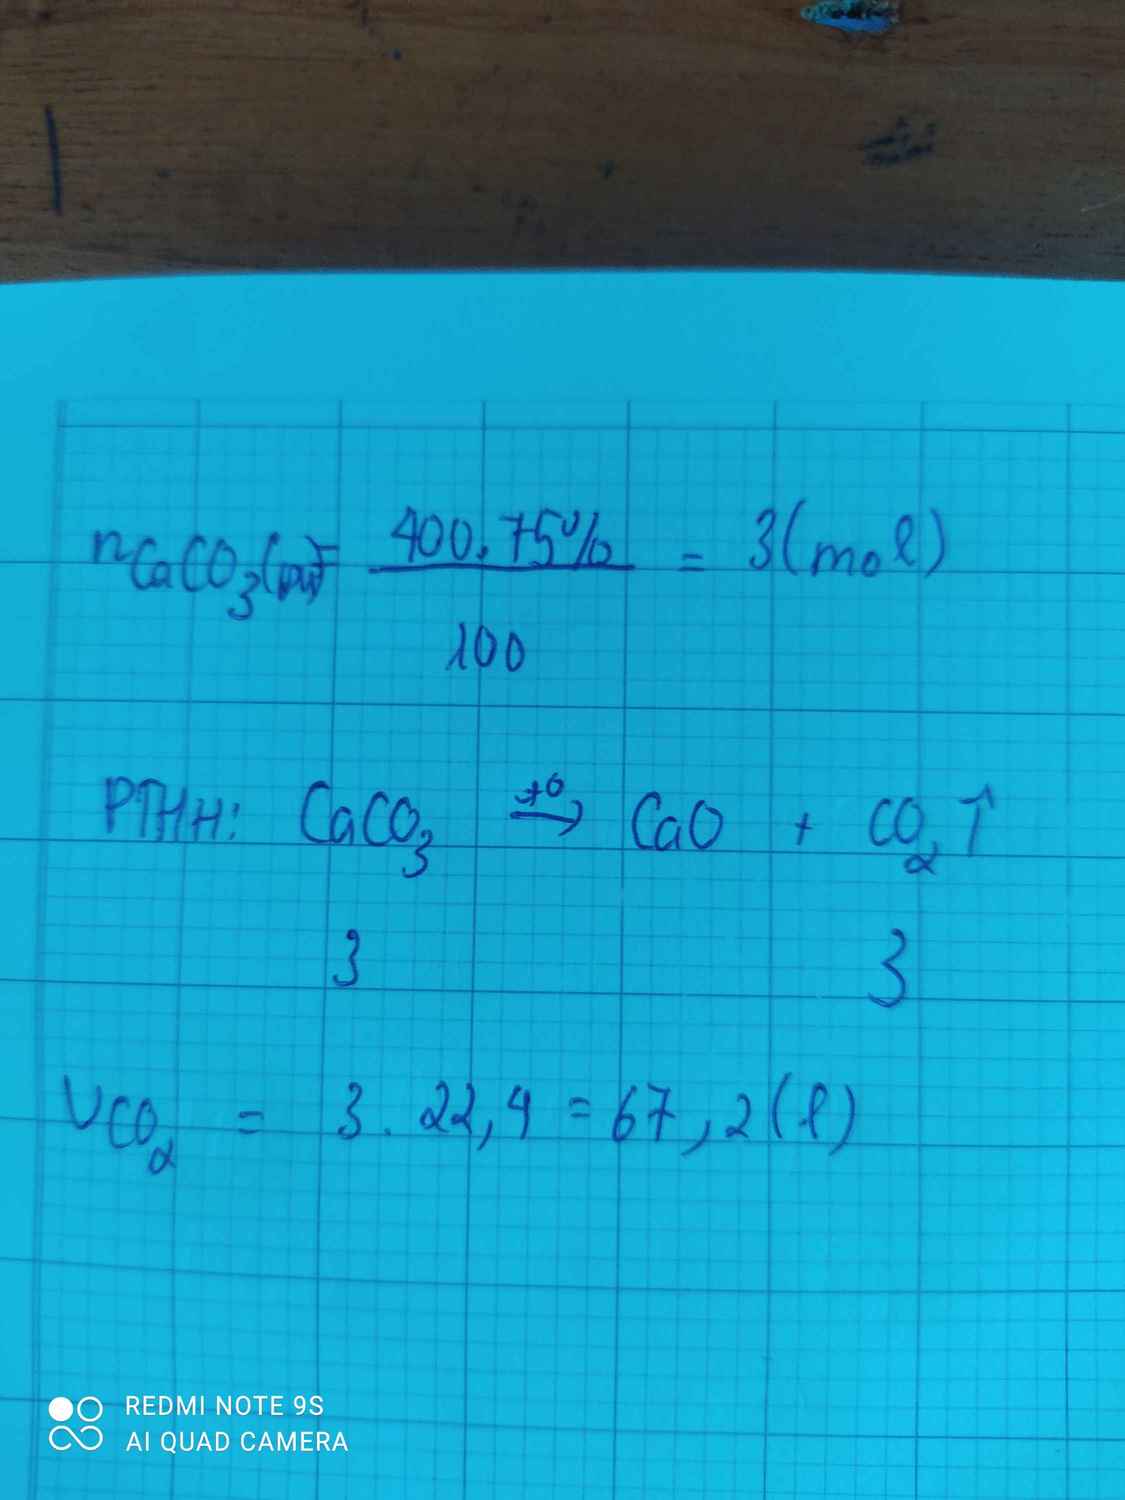 nCaCO3(pư) = 400.75% / 100 = 3(mol)
PTHH: CaCO3 t° → CaO + CO2↑
3 3
VCO2 = 3. 22,4 = 67,2(l)
REDMI NOTE 9S
AI QUAD CAMERA